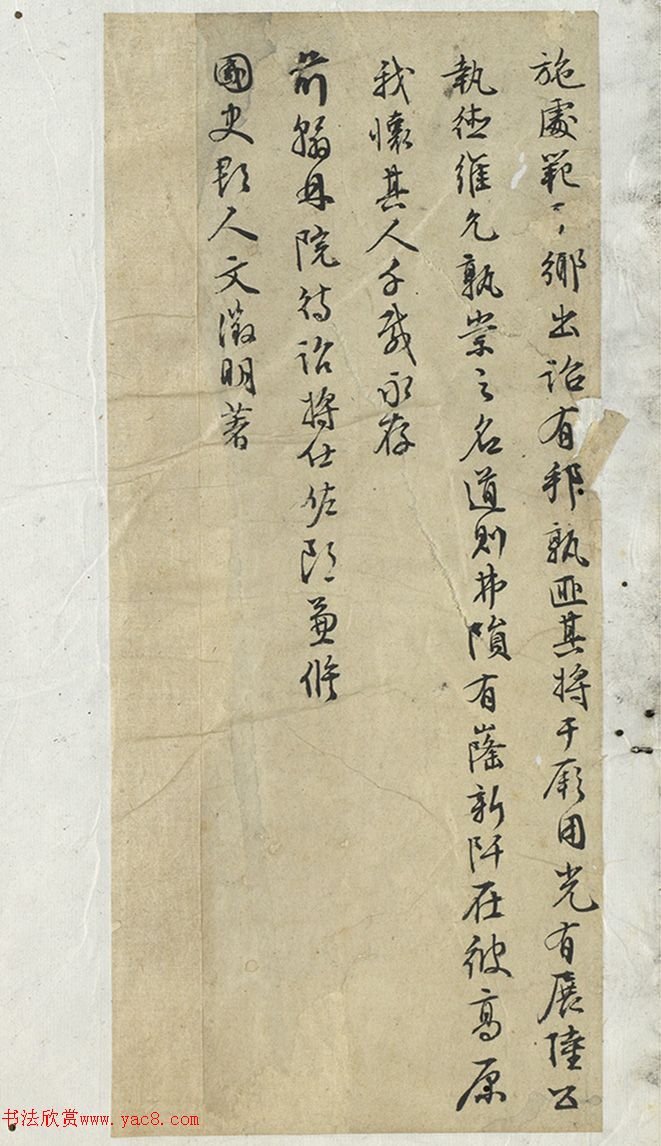 施處範〻鄉出詒有邦孰匪其將于厥用光有展陸公
執德維允孰崇之名道則弗隕有嶐新阡在彼高原
我懷其人千載永存
前翰林院待詔將仕佐郎兼修
國史郡人文徵明著
书法欣赏www.yac8.com